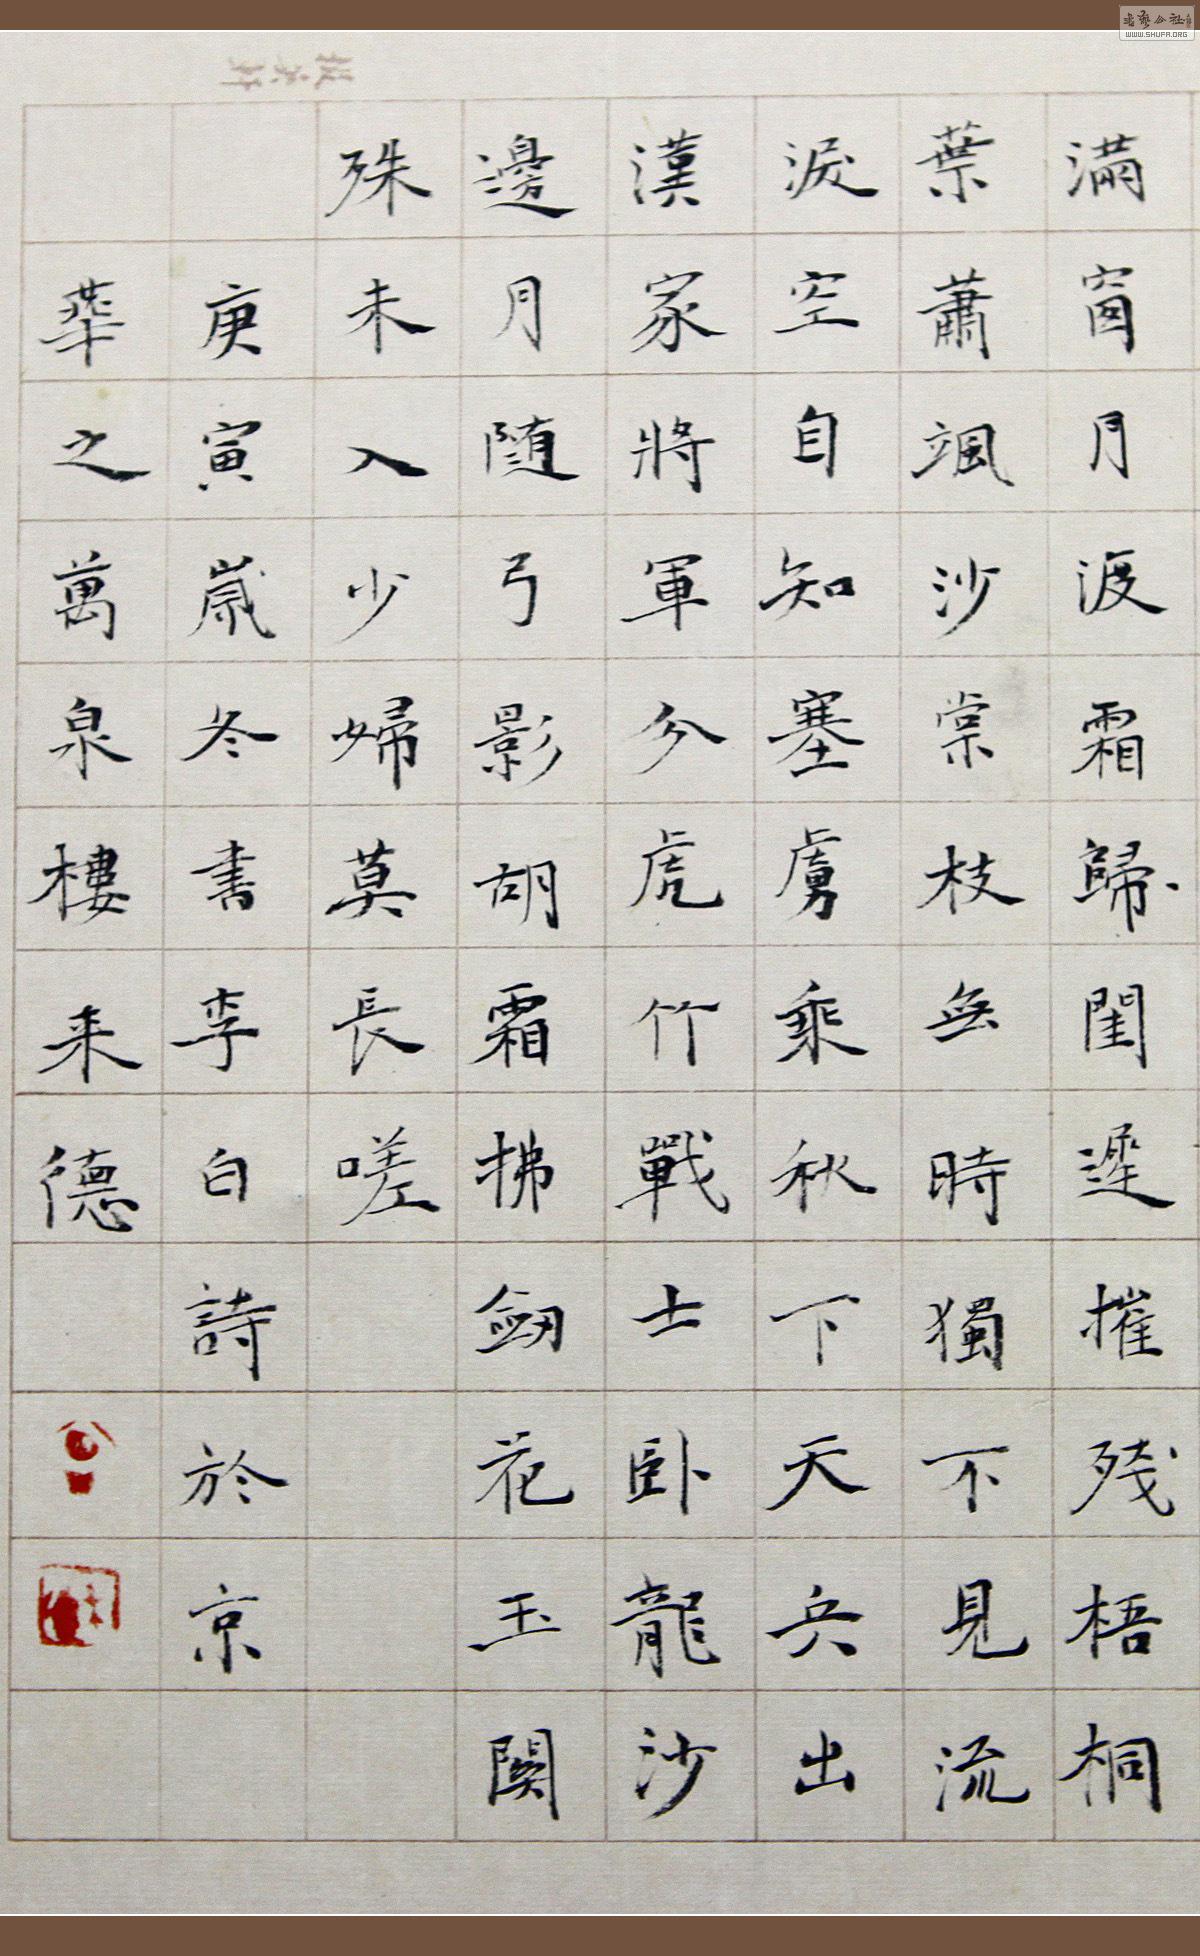 滿窗月淚霜歸閨遲摧殘梧桐
葉蕭颯沙棠枝無時獨不見流
淚空自知塞虜乘秋下天兵出
漢家將軍分虎竹戰士臥龍沙
邊月隨弓影胡霜拂劍花玉關
殊未入少婦莫長嗟
庚寅歲冬書李白詩於京
華之萬泉樓来德
WWW.SHUFA.ORG